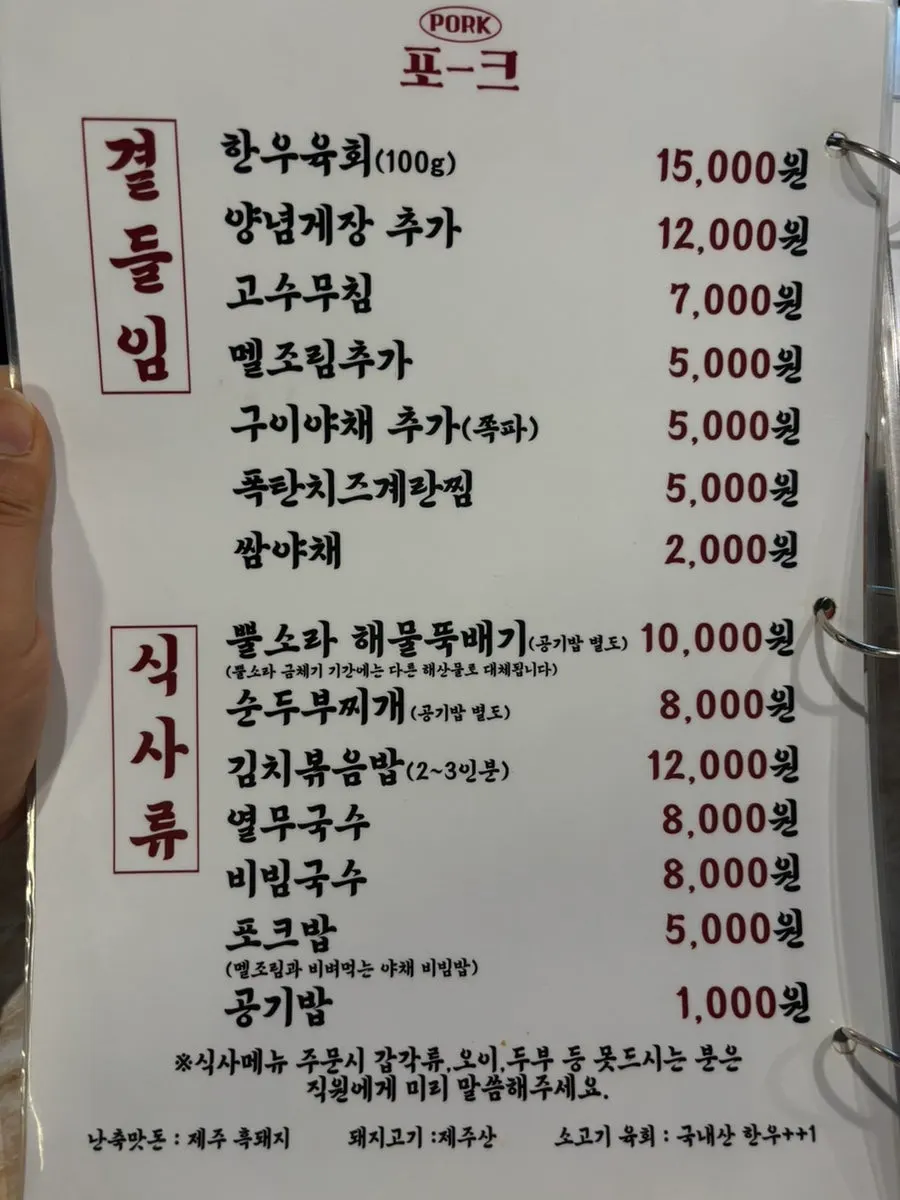 PORK
포-크
곁들임
한우육회(100g) 15,000원
양념게장 추가 12,000원
고수무침 7,000원
멜조림추가 5,000원
구이야채 추가(쪽파) 5,000원
폭탄치즈계란찜 5,000원
쌈야채 2,000원
식사류
뿔소라 해물뚝배기(공기밥 별도) 10,000원
(뿔소라 금체기 기간에는 다른 해산물로 대체됩니다)
순두부찌개(공기밥 별도) 8,000원
김치볶음밥(2~3인분) 12,000원
열무국수 8,000원
비빔국수 8,000원
포크밥 5,000원
(멜조림과 비벼먹는 야채 비빔밥)
공기밥 1,000원
※식사메뉴 주문시 갑각류,오이,두부 등 못드시는 분은
직원에게 미리 말씀해주세요.
난축맛돈 : 제주 흑돼지 돼지고기 :제주산 소고기 육회 : 국내산 한우++1